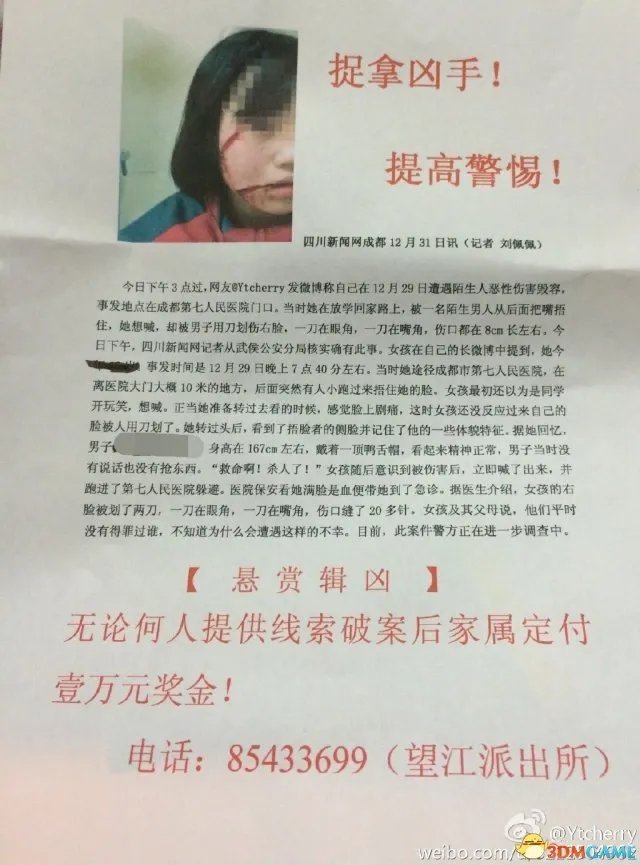 捉拿凶手！
提高警惕！
四川新闻网成都 12 月 31 日讯（记者 刘佩佩）
今日下午 3 点过，网友@Ytcherry 发微博称自己在 12 月 29 日遭遇陌生人恶性伤害毁容，
事发地点在成都第七人民医院门口。当时她在放学回家路上，被一名陌生男人从后面把嘴捂
住，她想喊，却被男子用刀划伤右脸，一刀在眼角，一刀在嘴角，伤口都在 8cm 长左右。今
日下午，四川新闻网记者从武侯公安分局核实确有此事。女孩在自己的长微博中提到，她今
事发时间是 12 月 29 日晚上 7 点 40 分左右。当时她途径成都市第七人民医院，在
离医院大门大概 10 米的地方，后面突然有人小跑过来捂住她的脸。女孩最初还以为是同学
开玩笑，想喊。正当她准备转过去看的时候，感觉脸上剧痛，这时女孩还没反应过来自己的
脸被人用刀划了。她转过头后，看到了捂脸者的侧脸并记住了他的一些体貌特征。据她回忆，
男子 身高在 167cm 左右，戴着一顶鸭舌帽，看起来精神正常，男子当时没
有说话也没有抢东西。“救命啊！杀人了！”女孩随后意识到被伤害后，立即喊了出来，并
跑进了第七人民医院躲避。医院保安看她满脸是血便带她到了急诊。据医生介绍，女孩的右
脸被划了两刀，一刀在眼角，一刀在嘴角，伤口缝了 20 多针，女孩及其父母说，他们平时
没有得罪过谁，不知道为什么会遭遇这样的不幸。目前，此案件警方正在进一步调查中。
【 悬赏辑凶 】
无论何人提供线索破案后家属定付
壹万元奖金！
电话：85433699（望江派出所）
@Ytcherry
weibo.com/
3DMGAME